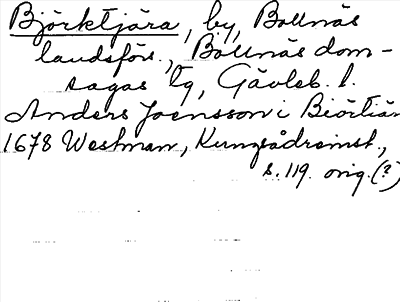 Björktjära, by, Bollnäs
landsförs., Bollnäs dom-
sagas tg, Gävleb. l.
Anders Joensson i Biörtiär
1678 Westman, Kungsådreinst.,
s. 119. orig. (?)